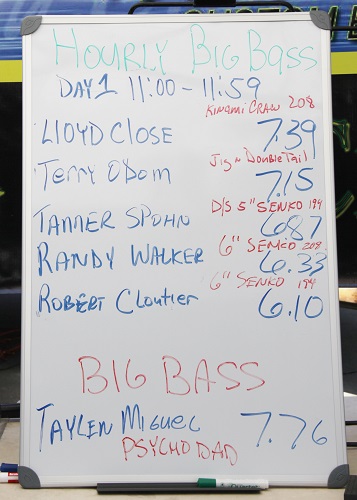 HOURLY BIG BASS
DAY 1 11:00 - 11:59
KINAMI CRAW 208
LLOYD CLOSE 7.39
Jig n Double Tail
Terry Odom 7.15
D/S 5" SENKO 194
TANNER SPOHN 6.87
6" SENKO 208
RANDY WALKER 6.33
6" SENKO 194
ROBERT Cloutier 6.10
BIG BASS
TAYLEN MIGUEL 7.76
PSYCHO DAD